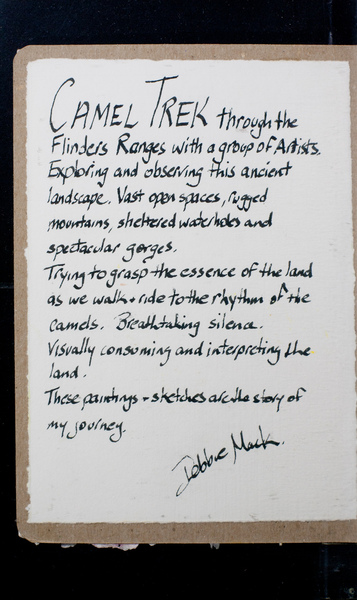 CAMEL TREK through the
Flinders Ranges with a group of Artists.
Exploring and observing this ancient
landscape. Vast open spaces, rugged
mountains, sheltered waterholes and
spectacular gorges.
Trying to grasp the essence of the land
as we walk + ride to the rhythm of the
camels. Breathtaking silence.
Visually consuming and interpreting the
land.
These paintings + sketches are the story of
my journey.
Debbie Mack.